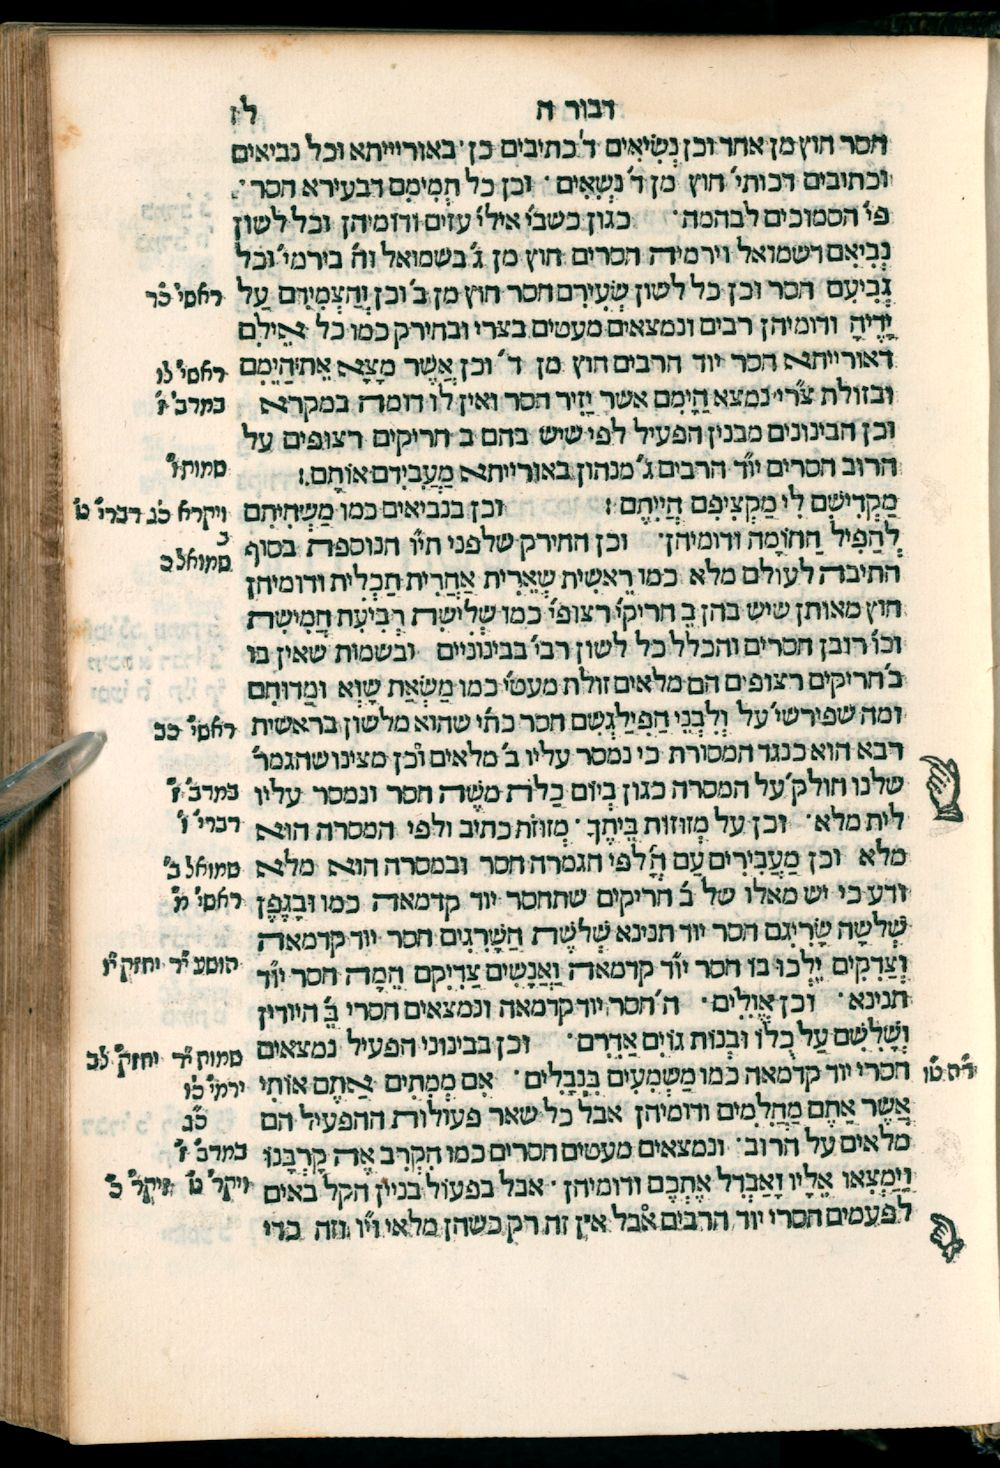 דבור ה
לז
חסר חוץ מן אחד וכן נְשִׂיאִים ד׳ כתיבים כן ׳ באורייתא וכל נביאים
וכתובים דכותי׳ חוץ מן ד׳ נְשִׂאִים ׳ וכן כל תְמִימִם דבעירא חסר ׳
פי׳ הסמוכים לבהמה ׳ כגון כשבי׳ אילי׳ עזים ודומיהן וכל לשון
נְבִיאִם דשמואל וירמיה חסרים חוץ מן ג׳ בשמואל וה׳ בירמי׳ וכל
גְבִיעִם חסר וכן כל לשון שְׂעִירִם חסר חוץ מן ב׳ וכן וְהַצְמִידִם עַל
ראשי׳ כד
יָדֶיהָ ודומיהן רבים ונמצאים מעטים בצרי ובחירק כמו כל אֵילִם
דאורייתא חסר יוד הרבים חוץ מן ד׳ וכן אֲשֶׁר מָצָא אֶת הַיֵמִם
ראשי׳ לו
ובזולת צרי׳ נמצא הַיָמִם אשר יָזִיר חסר ואין לו דומה במקרא
במדב׳ ו׳
וכן הבינונים מבנין הפעיל לפי שיש בהם ב חריקים רצופים על
הרוב חסרים יו״ד הרבים ג׳ מנהון באורייתא מַעֲבִידִם אוֹתָם :
שמות ו׳
מַקְדִישִׁם לִי מַקְצִיפִם הֱיִיתֶם : וכן בנביאים כמו מַשְׁחִיתִם
ויקרא כב דברי׳ ט׳
לְהַפִּיל הַחוֹמָה ודומיהן ׳ וכן החירק שלפני תי״ו הנוספת בסוף
שמואל ב כ
התיבה לעולם מלא כמו רֵאשִׁית שְׁאֵרִית אַחֲרִית תַכְלִית ודומיהן
חוץ מאותן שיש בהן ב׳ חריקי׳ רצופי׳ כמו שְׁלִישִׁת רְבִיעִת חֲמִישִׁת
וכו׳ רובן חסרים והכלל כל לשון רבו׳ בבינוניים ובשמות שאין בו
ב׳ חריקים רצופים הם מלאים זולת מעטי׳ כמו מַשְׂאַת שָׁוְא וּמַדוּחִם
ומה שפירשי׳ על וְלִבְנֵי הַפִילַגְשִׁם חסר כתי׳ שהוא מלשון בראשית
ראשי׳ כה
רבא הוא כנגד המסורת כי נמסר עליו ב׳ מלאים וכן מצינו שהגמר׳
שלנו חולק׳ על המסרה כגון בְיוֹם כַלֹת מֹשֶׁה חסר ונמסר עליו
במדב׳ ז׳
לית מלא ׳ וכן על מְזוּזוֹת בֵיתֶךָ ׳ מְזוּזֹת כתיב ולפי המסרה הוא
דברי׳ ו׳
מלא וכן מַעֲבִירִים עַם ה׳ לפי הגמרה חסר ובמסרה הוא מלא
שמואל ב׳
ודע כי יש מאלו של ב׳ חריקים שתחסר יוד קדמאה כמו וּבַגֶפֶן
ראשי׳ מ׳
שְׁלשָׁה שָׂרִיגִם חסר יוד תנינא שְׁלֹשֶׁת הַשָׂרִגִים חסר יוד קדמאה
וְצַדִקִים יֵלְכוּ בו חסר יו״ד קדמאה וַאֲנָשִׁים צַדִיקִם הֵמָה חסר יו״ד
הושע י״ד יחזק׳
תנינא ׳ וכן אֱוִלִים ׳ ה׳ חסר יוד קדמאה ונמצאים חסרי ב׳ היודין
וְשָׁלִשִׁם עַל כֻלוֹ וּבְנוֹת גוֹיִם אַדִרִם ׳ וכן בבינוני הפעיל נמצאים
שמות י״ד יחזק׳ לב
חסרי יוד קדמאה כמו מַשְׁמִעִים בִנְבָלִים ׳ אִם מְמִתִים אַתֶם אוֹתִי
ירמי׳ כו
אֲשֶׁר אַתֶם מַחֲלִמִים ודומיהן אבל כל שאר פעולות ההפעיל הם
מלאים על הרוב ׳ ונמצאים מעטים חסרים כמו הִקְרִב אֶת קָרְבָנוֹ
במדב׳ ז׳
וַיַמְצִאוּ אֵלָיו וָאַבְדִל אֶתְכֶם ודומיהן ׳ אבל בפעול בניין הקל באים
ויקר׳ ט׳ ויקר׳ כ׳
לפעמים חסרי יוד הרבים אבל אין זה רק כשהן מלאי וי״ו וזה כדי